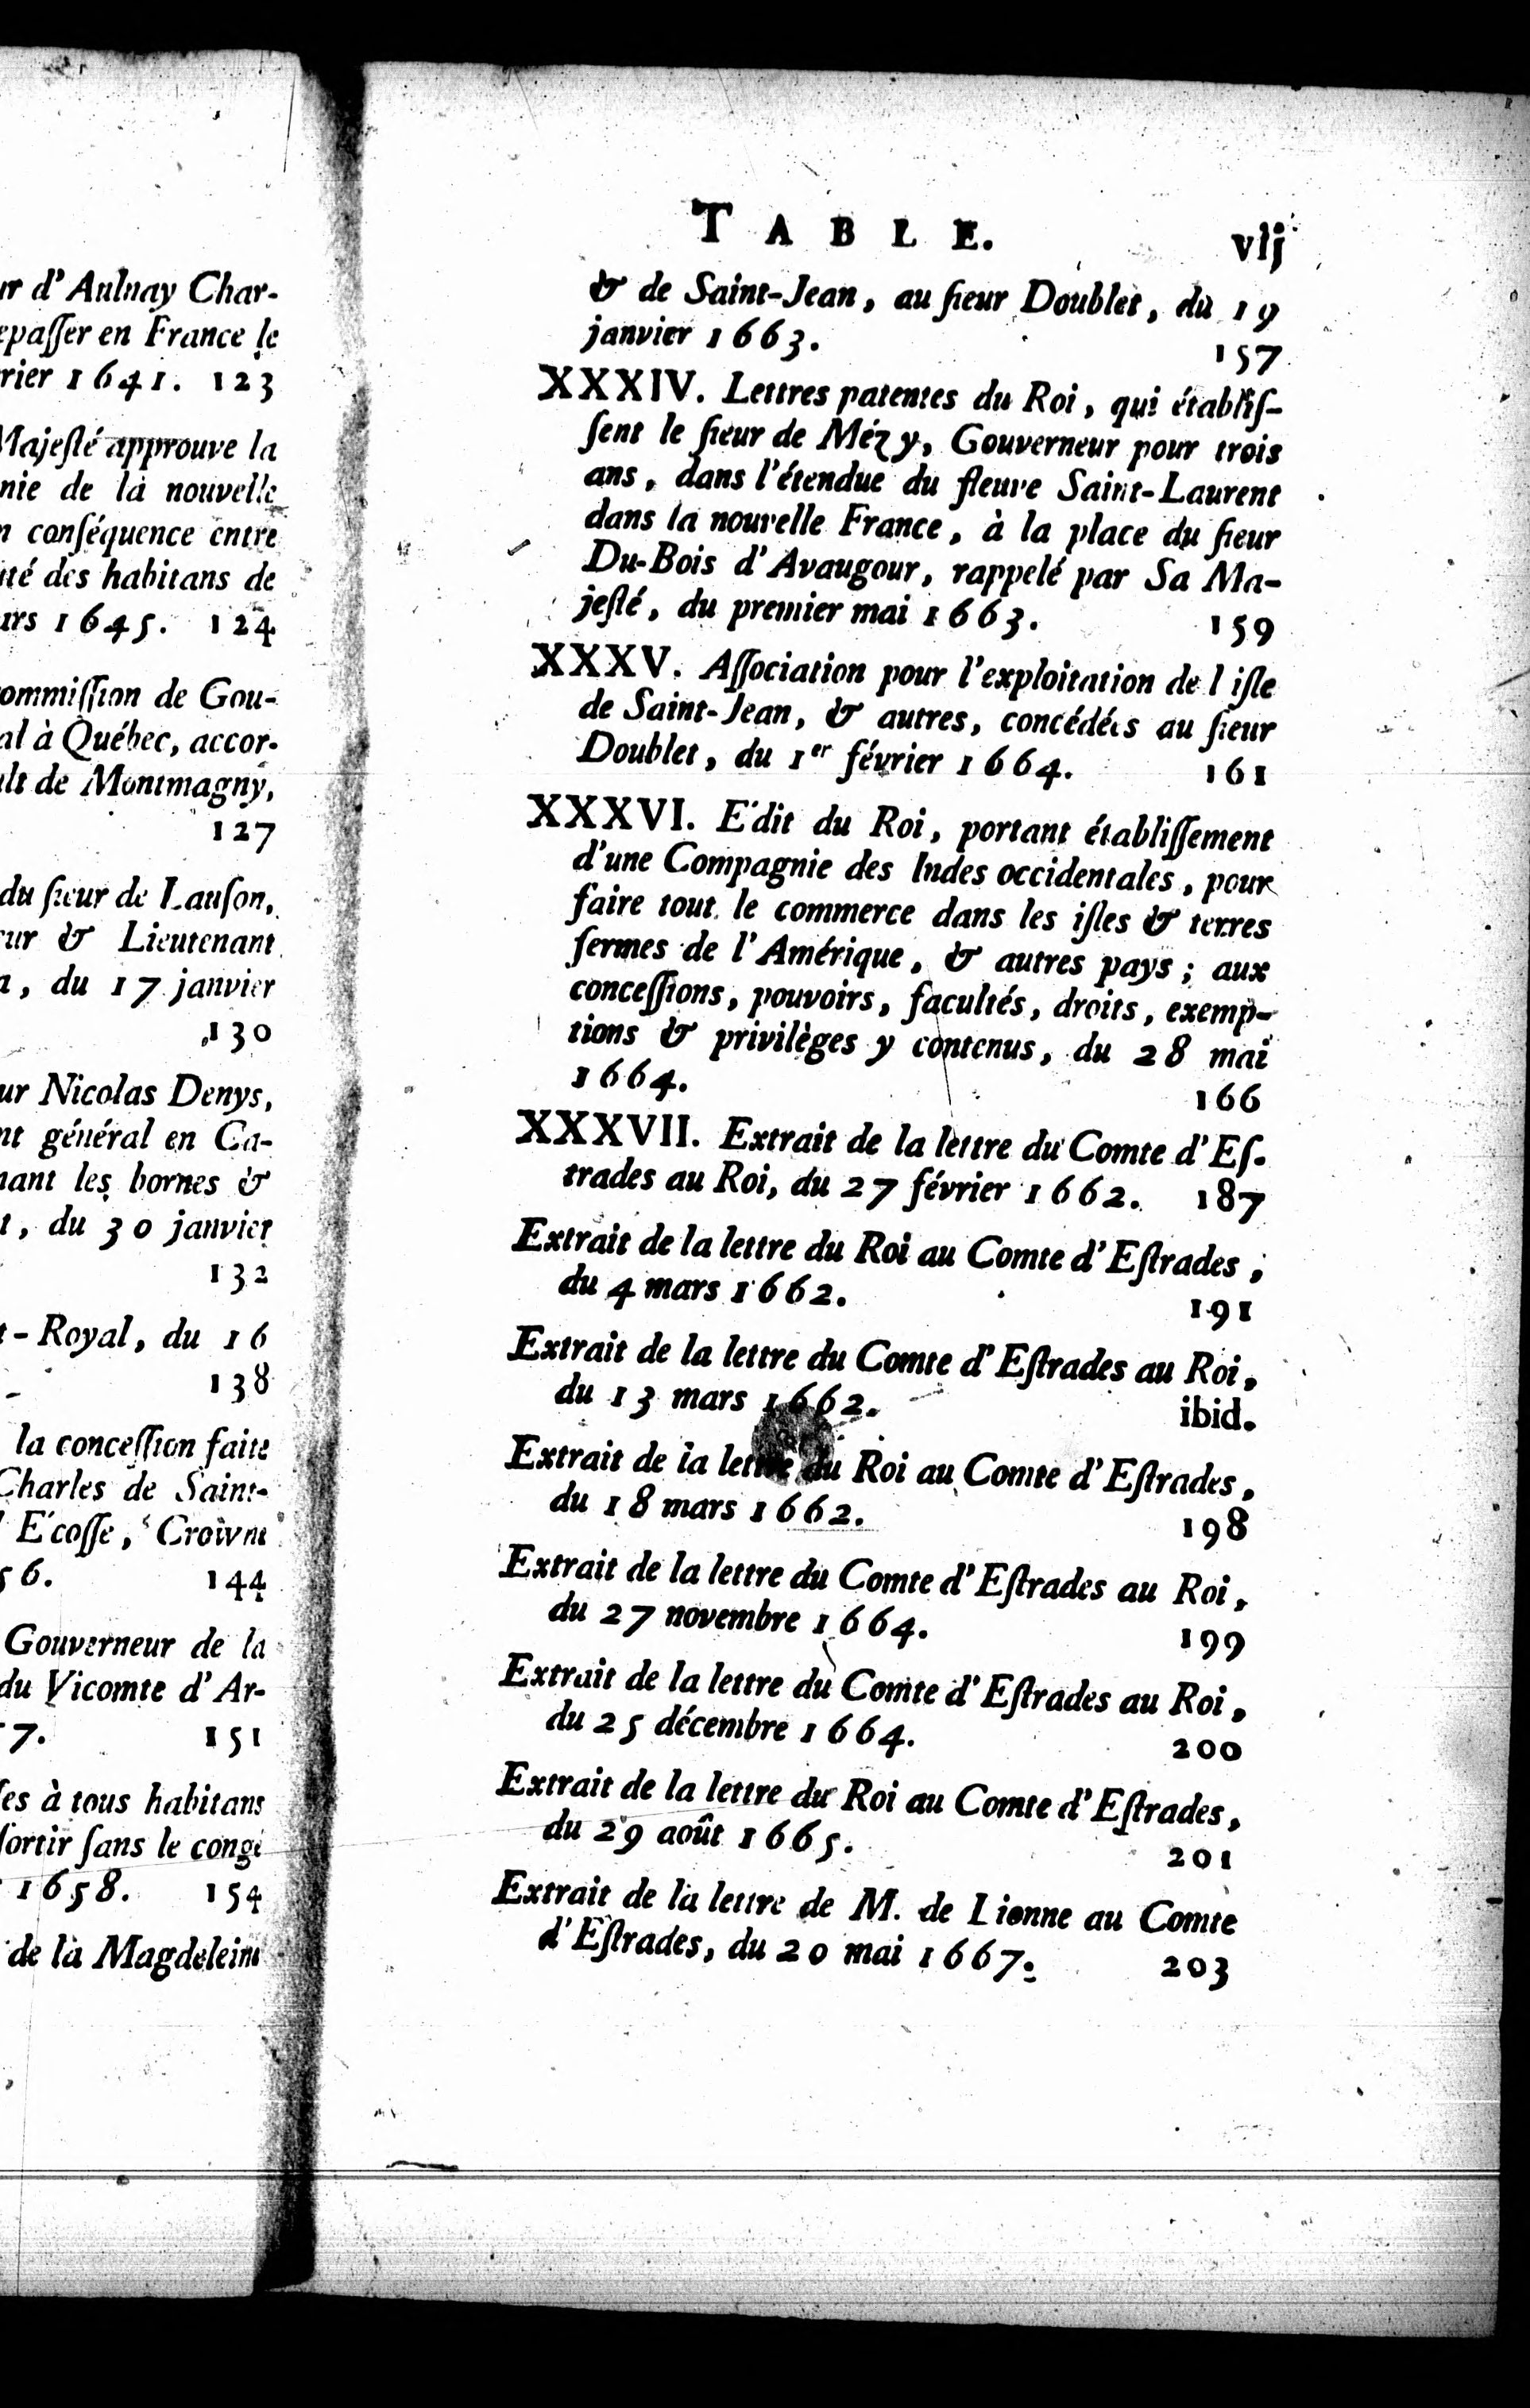 ur d'Aulnay Char-
epaſſer en France le
rier 1641. 123
Majeſté approuve la
nie de la nouvelle
n conſéquence entre
uté des habitans de
ars 1645. 124
ommiſſion de Gou-
al à Québec, accor-
ult de Montmagny,
127
du ſieur de Lauſon,
eur & Lieutenant
a, du 17 janvier
130
ur Nicolas Denys,
nt général en Ca-
nant les bornes &
t, du 30 janvier
132
t-Royal, du 16
138
la conceſſion faite
Charles de Saint-
Ecoſſe, Crowne
56. 144
Gouverneur de la
du Vicomte d'Ar-
57. 151
ſes à tous habitans
ſortir ſans le congé
1658. 154
de la Magdeleine
TABLE. vij
& de Saint-Jean, au ſieur Doublet, du 19
janvier 1663. 157
XXXIV. Lettres patentes du Roi, qui établiſ-
ſent le ſieur de Mézy, Gouverneur pour trois
ans, dans l'étendue du fleuve Saint-Laurent
dans la nouvelle France, à la place du ſieur
Du-Bois d'Avaugour, rappelé par Sa Ma-
jeſté, du premier mai 1663. 159
XXXV. Aſſociation pour l'exploitation de l'iſle
de Saint-Jean, & autres, concédées au ſieur
Doublet, du 1er février 1664. 161
XXXVI. E'dit du Roi, portant établiſſement
d'une Compagnie des Indes occidentales, pour
faire tout le commerce dans les iſles & terres
fermes de l'Amérique, & autres pays; aux
conceſſions, pouvoirs, facultés, droits, exemp-
tions & privilèges y contenus, du 28 mai
1664. 166
XXXVII. Extrait de la lettre du Comte d'Eſ-
trades au Roi, du 27 février 1662. 187
Extrait de la lettre du Roi au Comte d'Eſtrades,
du 4 mars 1662. 191
Extrait de la lettre du Comte d'Eſtrades au Roi,
du 13 mars 1662. ibid.
Extrait de la lettre du Roi au Comte d'Eſtrades,
du 18 mars 1662. 198
Extrait de la lettre du Comte d'Eſtrades au Roi,
du 27 novembre 1664. 199
Extrait de la lettre du Comte d'Eſtrades au Roi,
du 25 décembre 1664. 200
Extrait de la lettre du Roi au Comte d'Eſtrades,
du 29 août 1665. 201
Extrait de la lettre de M. de Lionne au Comte
d'Eſtrades, du 20 mai 1667. 203